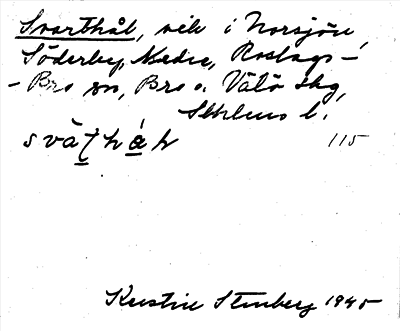 Svarthål, vik i Norsjön,
Söderby, Nedre, Roslags-
-Bro sn, Bro o. Vätö skg,
Sthlms l.
115
Kerstin Stenberg 1945